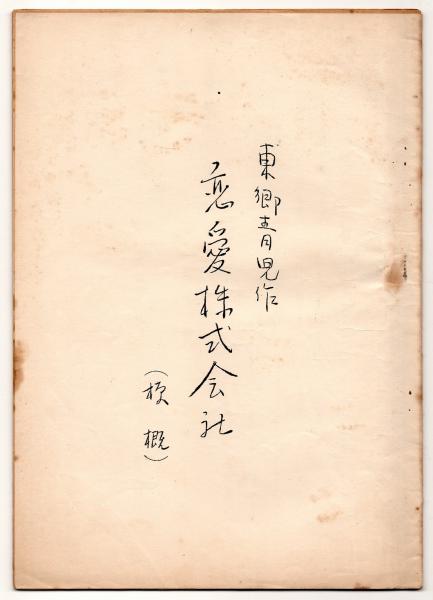 東郷青児作
恋愛株式会社
（梗概）